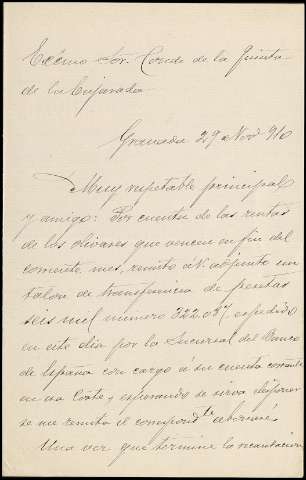 Excmo Sor. Conde de la Quinta
de la Enjarada
Granada 29 Nov 910
Muy respetable principal
y amigo: Por cuenta de las rentas
de los olivares que vencen en fin del
corriente mes, remito á V. adjunto un
talon de transferencia de pesetas
seis mil numero 322.037 expedido
en este dia por la Sucursal del Banco
de España con cargo á su cuenta corriente
en esa Corte y esperando se sirva disponer
se me remita el correspondte abonaré.
Una vez que termine la recaudacion